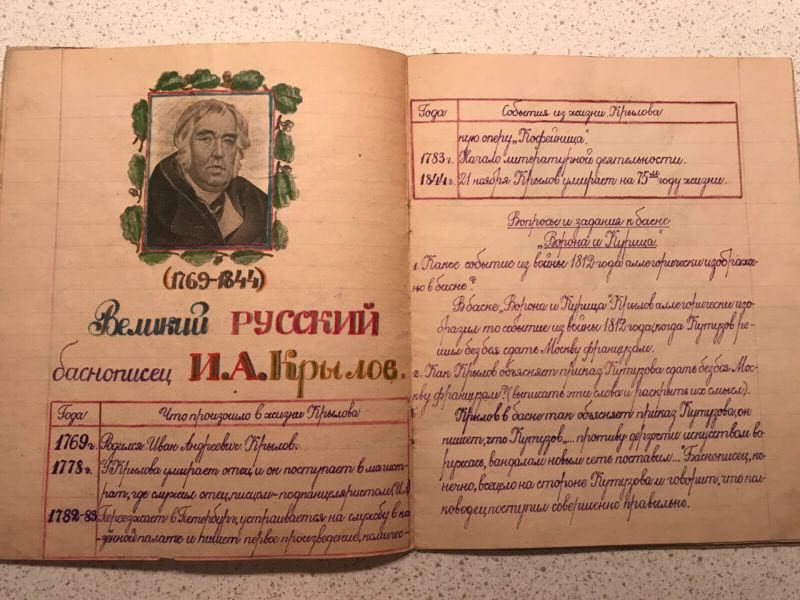 (1769-1844)
Великий РУССКИЙ
баснописец И.А.Крылов.
Года Что произошло в жизни Крылова
1769 г. Родился Иван Андреевич Крылов.
1778 г. У Крылова умирает отец и он поступает в магист-
рат, где служил отец, писцом-подканцеляристом
1782-83 Переезжает в Петербург, устраивается на службу в ка
зённой палате и пишет первое произведение, комичес-
Года События из жизни Крылова
кую оперу „Кофейница".
1783 г. Начало литературной деятельности.
1844 г. 21 ноября Крылов умирает на 75ом году жизни.
Вопросы и задания к басне
„Ворона и Курица".
1. Какое событие из войны 1812 года аллегорически изображе-
но в басне?
В басне „Ворона и Курица" Крылов аллегорически изо-
бразил то событие из войны 1812 года, когда Кутузов ре-
шил без боя сдать Москву французам.
2. Как Крылов объясняет приказ Кутузова сдать без боя Мос-
кву французам? (выписать эти слова и раскрыть их смысл).
Крылов в басне так объясняет приказ Кутузова, он
пишет, что Кутузов „... противу дерзости искусством во
ружась, вандалам новым сеть поставил..." Баснописец, ко-
нечно, всецело на стороне Кутузова и говорит, что пол-
ководец поступил совершенно правильно.